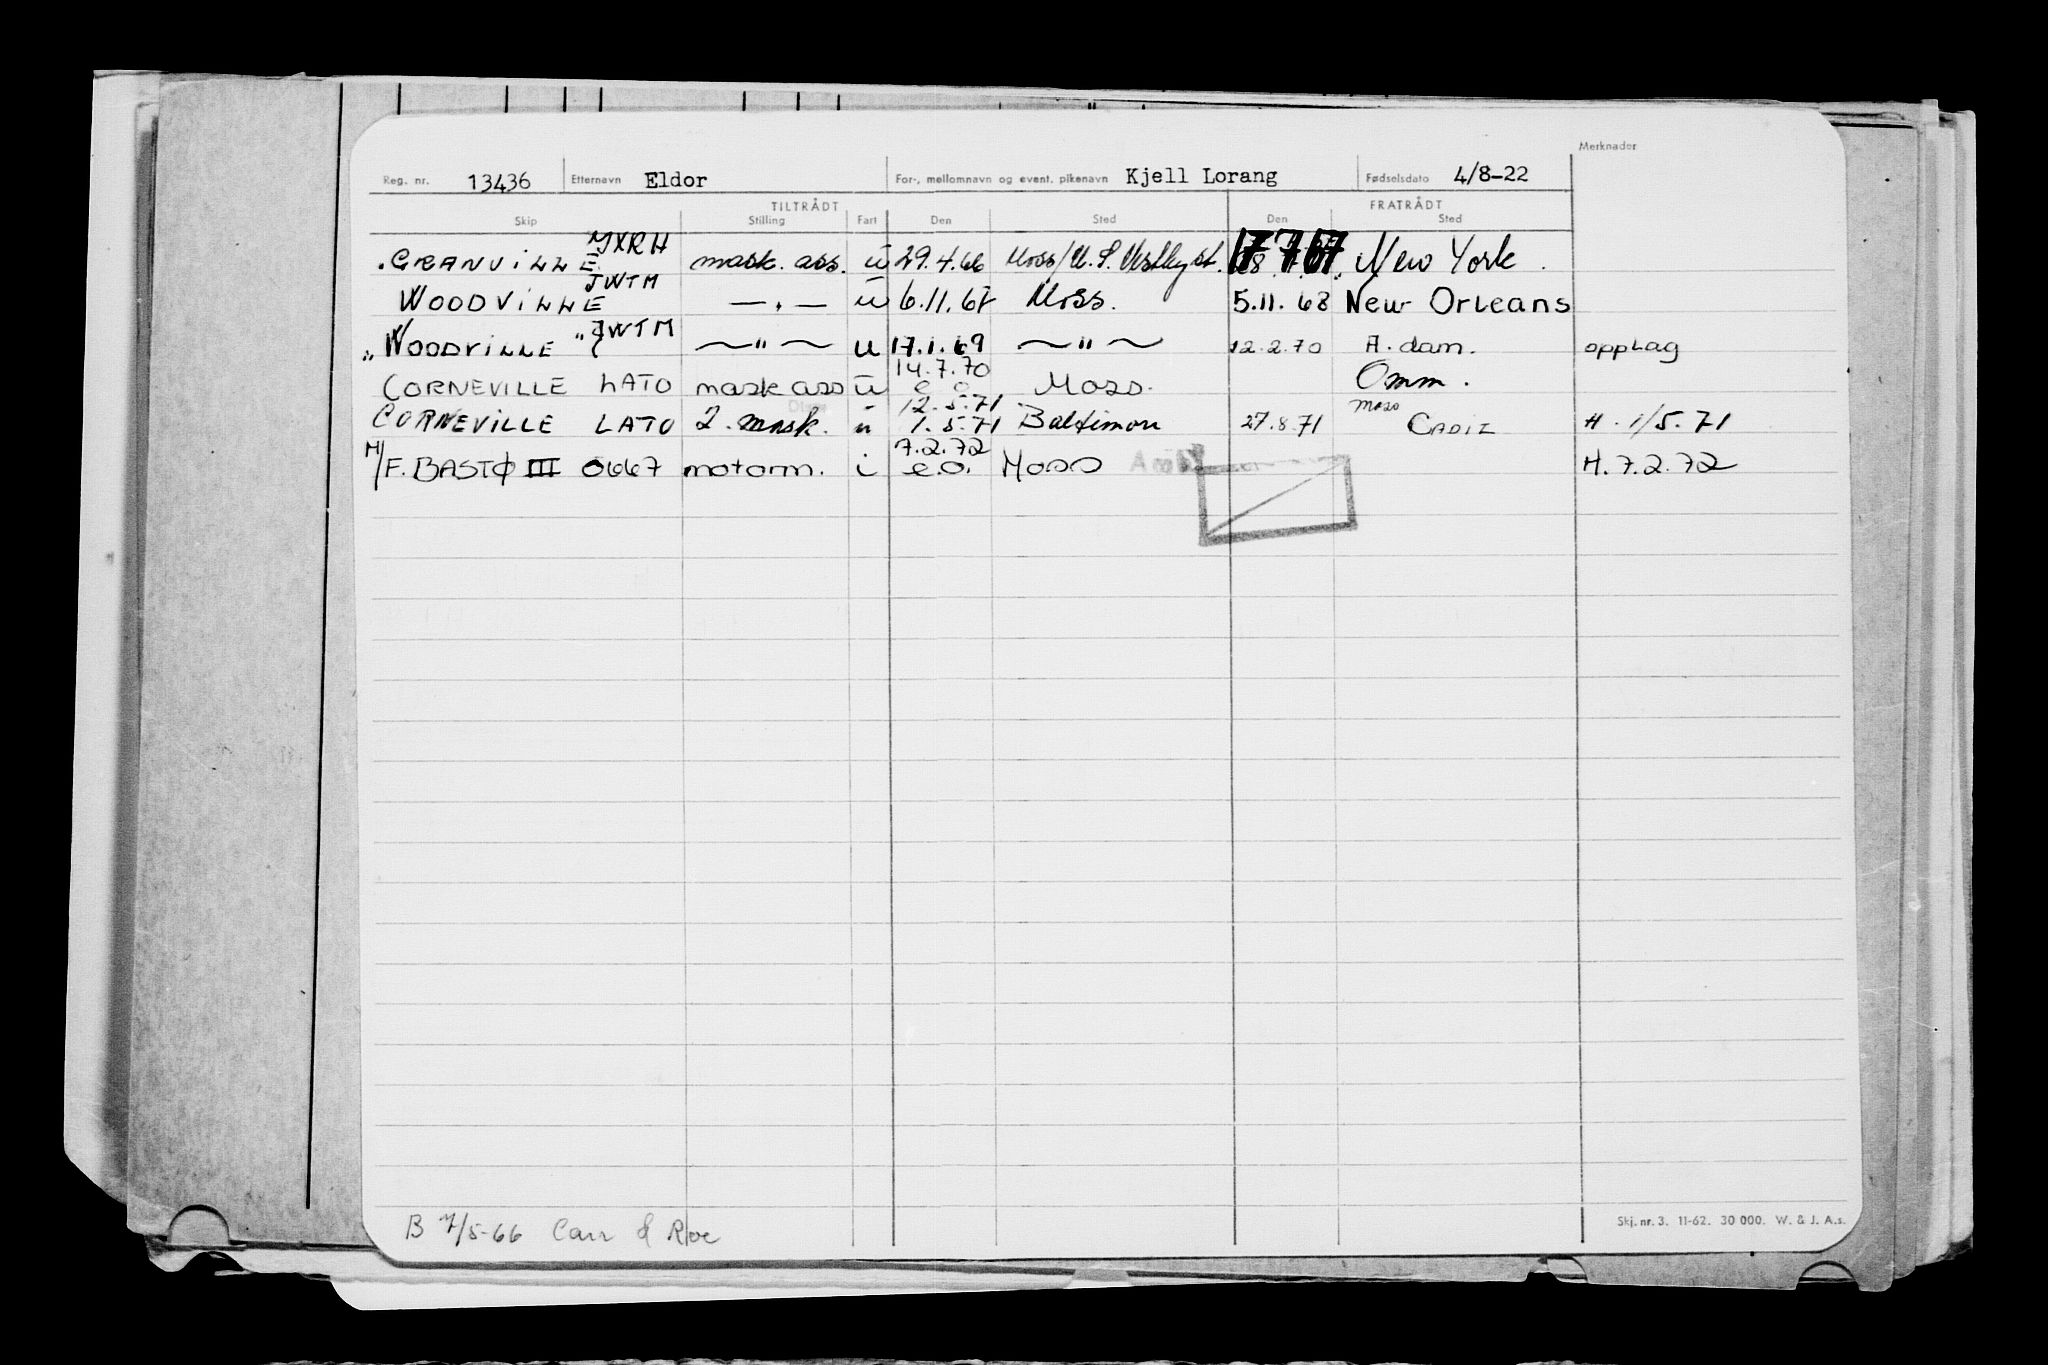 Merknader
Reg. nr. 13436 Etternavn Eldor For-, mellomnavn og event. pikenavn Kjell Lorang Fødselsdato 4/8-22
TILTRÅDT FRATRÅDT
Skip Stilling Fart Den Sted Den Sted
GRANVILLE JXRH mask. ass. u 29.4.66 Moss/U.S. Vestkyst. 17 7 67 New York.
WOODVILLE JWTM —„— u 6.11.67 Moss. 5.11.68 New Orleans
„ WOODVILLE „ JWTM —"— u 17.1.69 —"— 12.2.70 A.dam. opplag
CORNEVILLE LATO mask ass u 14.7.70 e o Moss. Omm.
CORNEVILLE LATO 2. mask. u 12.5.71 1.5.71 Baltimore 27.8.71 moss CADIZ H. 1/5.71
M/F. BASTØ III 0667 motorm. i 7.2.72 e.o. Moss H. 7.2.72
B 7/5-66 Carr & Roe
Skj. nr. 3. 11-62. 30 000. W. & J. A.s.